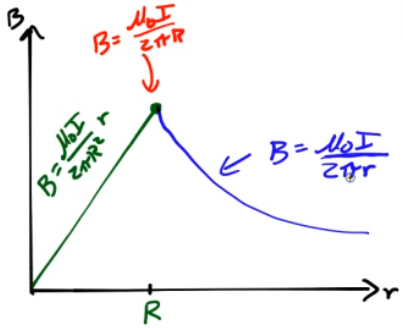 B
B = μ₀I / 2πR
B = μ₀I / 2πR² r
B = μ₀I / 2πr
R
r